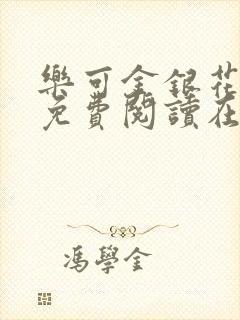 樂可金銀花
免費閱讀在
馮學金